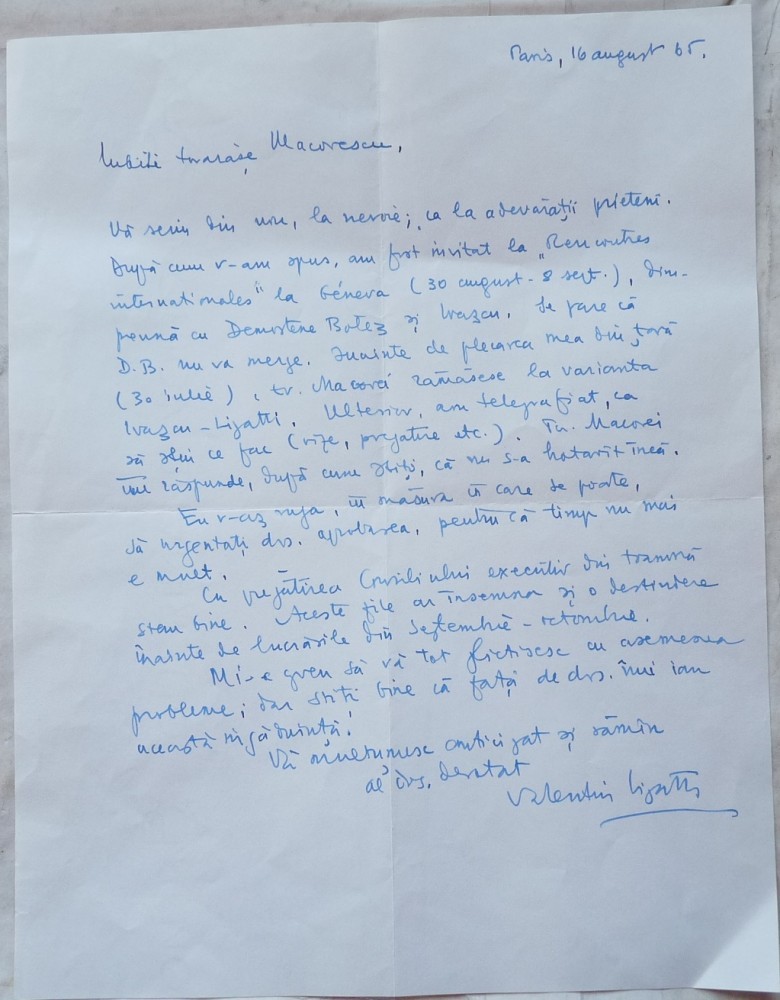 Paris, 16 august 65.
Iubite tovarășe Macovescu,
Vă scriu din nou, la nevoie; ca la adevărații prieteni.
După cum v-am spus, am fost invitat la "Rencontres
internationales" la Géneva (30 august - 8 sept.), dim-
preună cu Demostene Botez și Ivașcu. Se pare că
D.B. nu va merge. Înainte de plecarea mea din țară
(30 iulie), tv. Macovei rămăsese la varianta
Ivașcu - Lipatti. Ulterior, am telegrafiat, ca
să știu ce fac (vize, pregătire etc.). Tv. Macovei
îmi răspunde, după cum știți, că nu s-a hotărît încă.
Eu v-aș ruga, în măsura în care se poate,
să urgentați dvs. aprobarea, pentru că timp nu mai
e mult.
Cu pregătirea Consiliului executiv din toamnă
stau bine. Aceste zile ar însemna și o destindere
înainte de lucrările din septembrie - octombrie.
Mi-e greu să vă tot plictisesc cu asemenea
probleme; dar știți bine că față de dvs. îmi iau
această îngăduință!
Vă mulțumesc anticipat și rămîn
al dvs. devotat
Valentin Lipatti